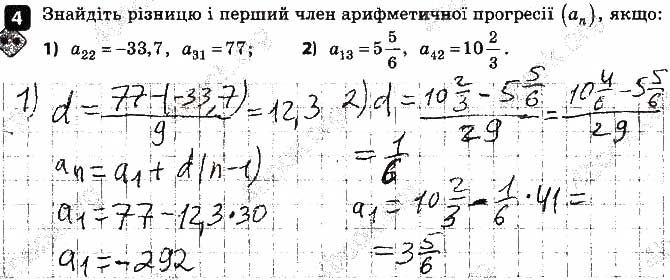 4 Знайдіть різницю і перший член арифметичної прогресії (aₙ), якщо:
1) a₂₂ = –33,7, a₃₁ = 77; 2) a₁₃ = 5 5/6, a₄₂ = 10 2/3.
1) d = (77-(-33,7))/9 = 12,3
aₙ = a₁ + d(n-1)
a₁ = 77 - 12,3 • 30
a₁ = -292
2) d = (10 2/3 - 5 5/6)/29 = (10 4/6 - 5 5/6)/29
= 1/6
a₁ = 10 2/3 - 1/6 • 41 =
= 3 5/6